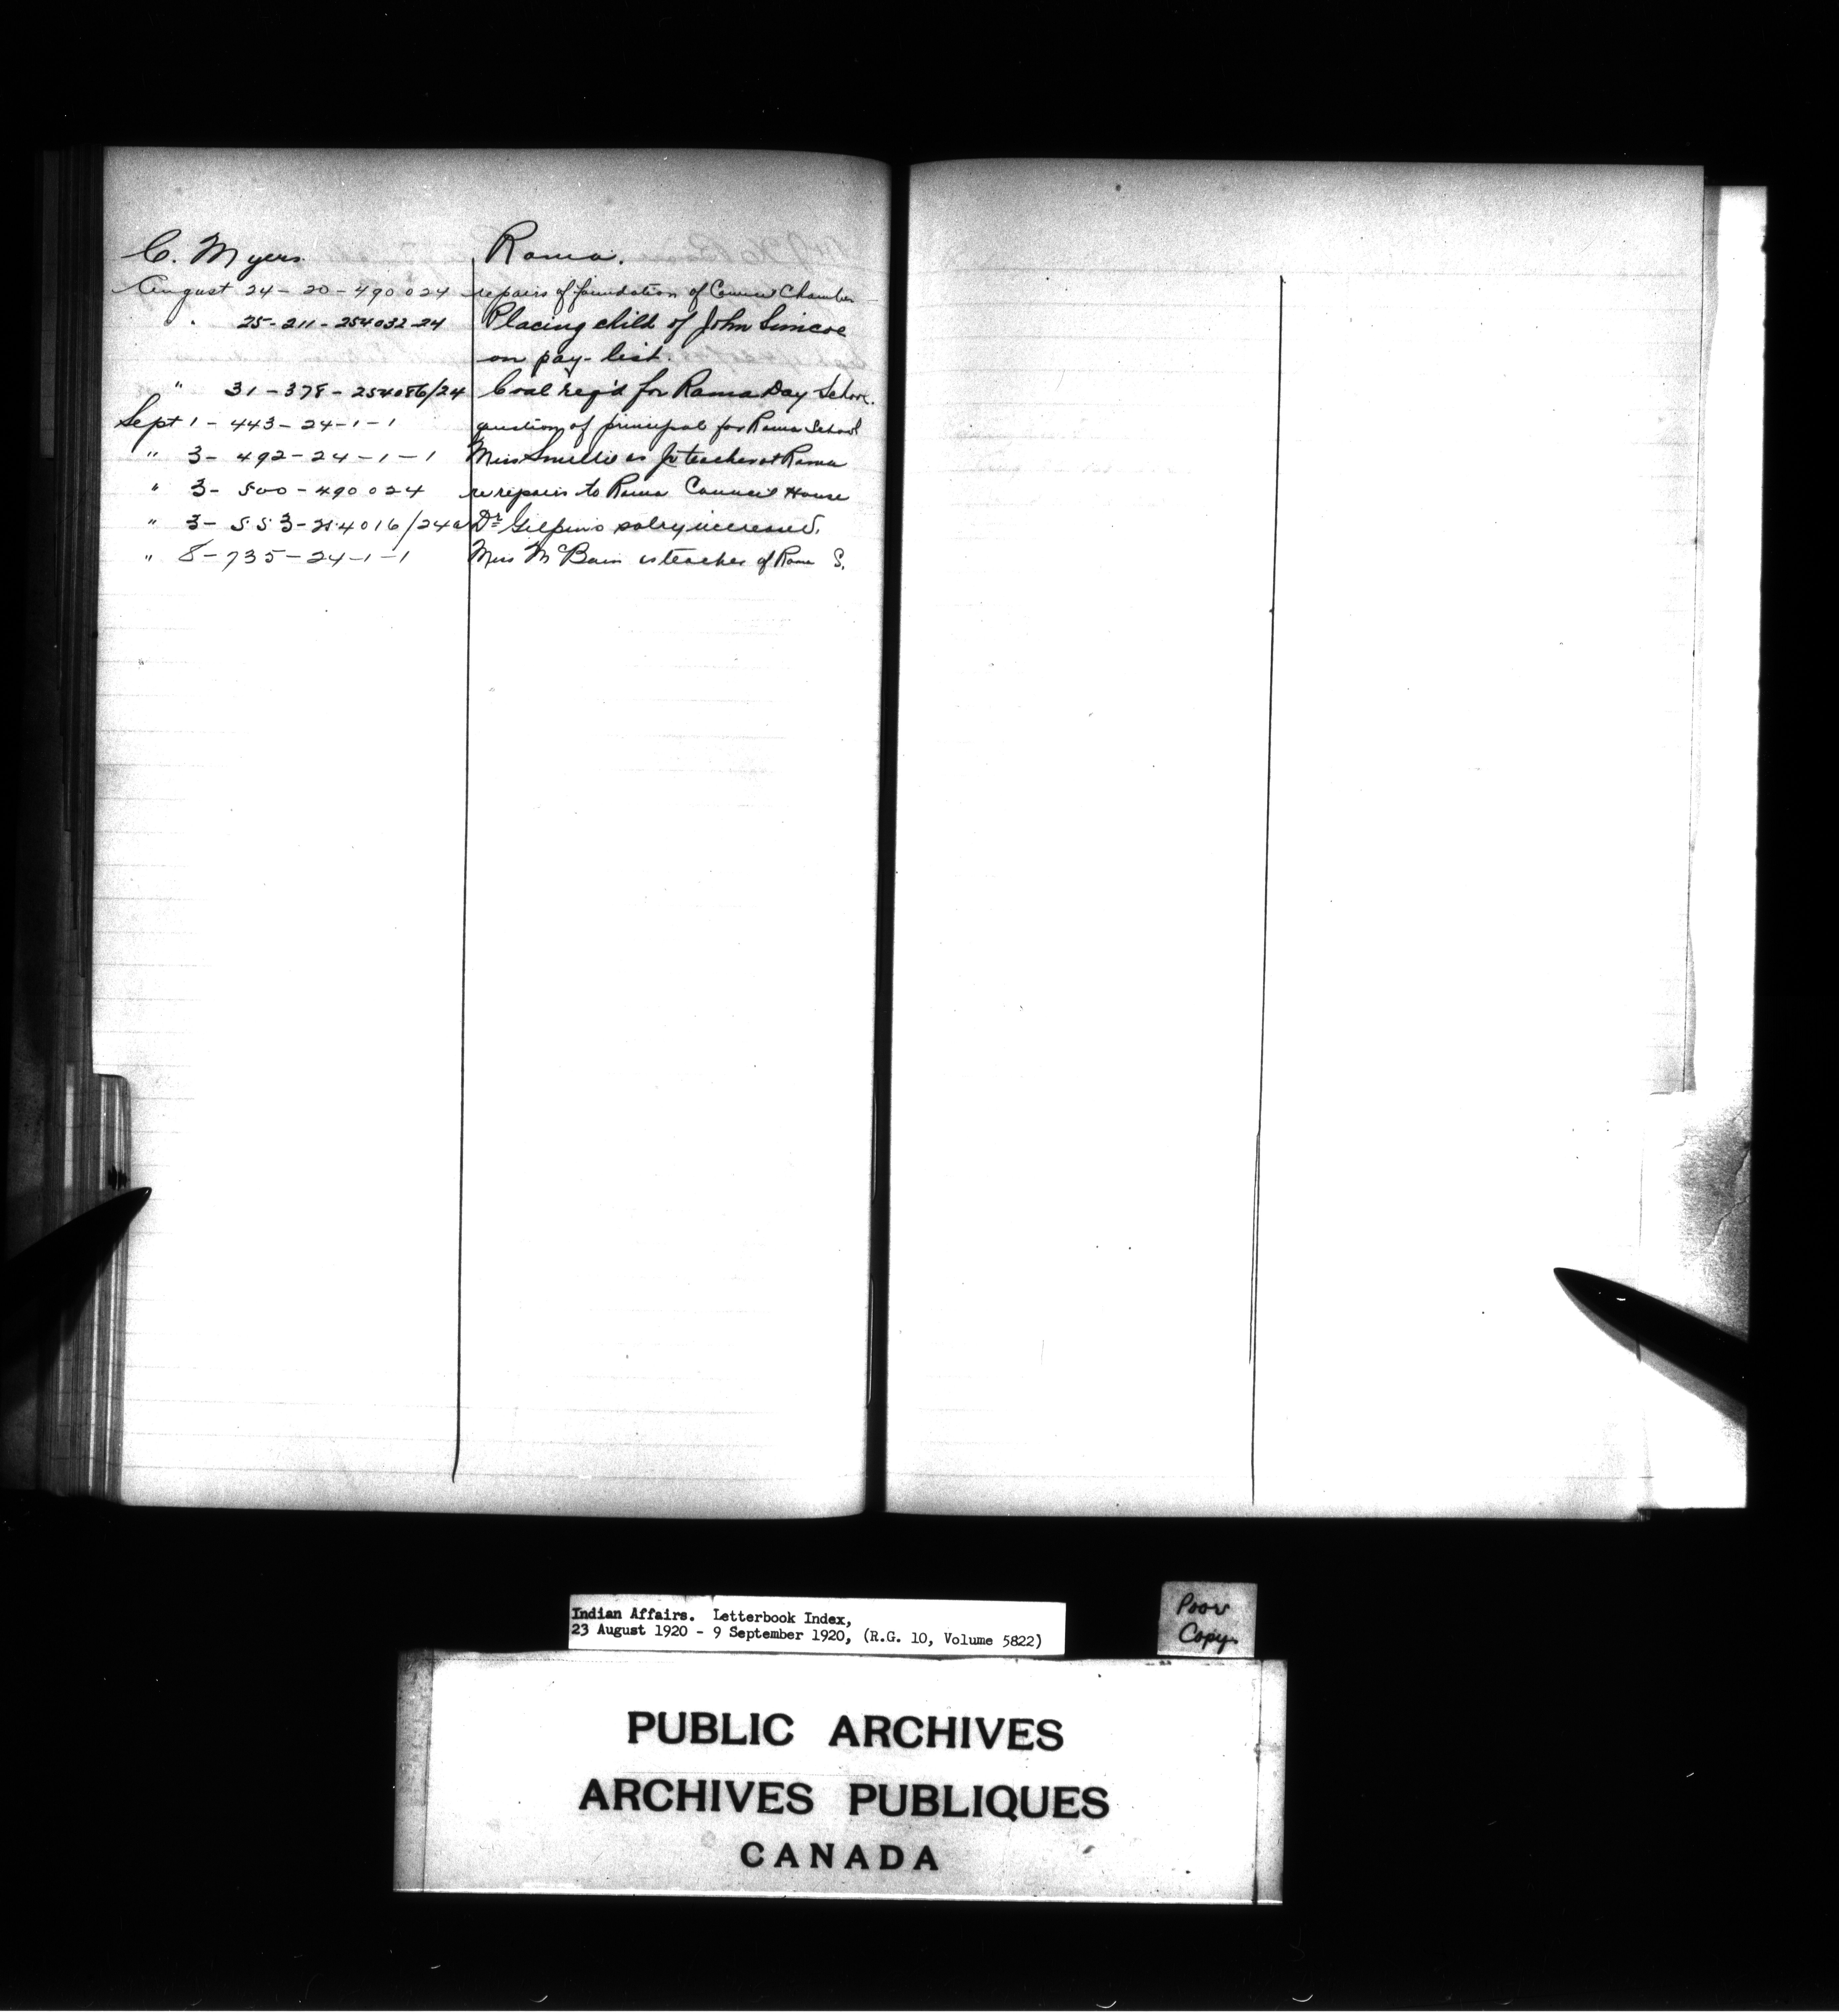 C. Myers. Rama.
August 24 - 20 - 490024 repairs of foundation of Council Chamber
" 25 - 211 - 254032-24 Placing child of John Simcoe
on pay-list.
" 31 - 378 - 254086/24 Coal req'd for Rama Day School.
Sept 1 - 443 - 24-1-1 question of principal for Rama School
" 3 - 492 - 24-1-1 Miss Smellie as Jr teacher at Rama
" 3 - 500 - 490024 re repairs to Rama Council House
" 3 - 553 - 254016/24a Dr Gilpin's salry increased.
" 8 - 735 - 24-1-1 Miss McBain as teacher of Rama S.
Indian Affairs. Letterbook Index,
23 August 1920 - 9 September 1920, (R.G. 10, Volume 5822)
Poor
Copy
PUBLIC ARCHIVES
ARCHIVES PUBLIQUES
CANADA